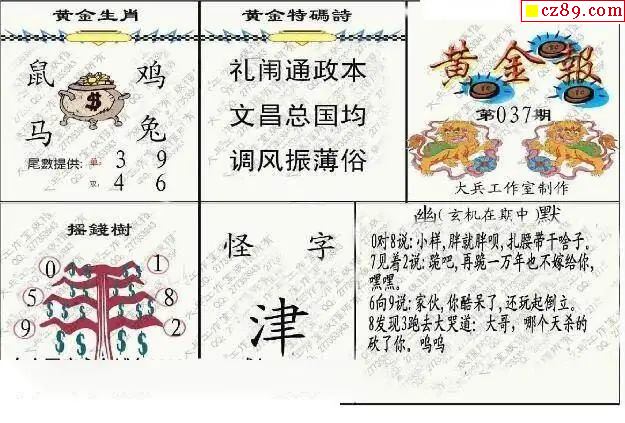 cz89.com
黄金生肖
鼠
鸡
马
兔
尾數提供:
单:
3 9
双:
4 6
黄金特碼詩
礼闹通政本
文昌总国均
调风振薄俗
黄金報
第037期
大兵工作室制作
摇錢樹
0
1
5
8
9
2
怪 字
津
幽(玄机在期中)默
0对8说:小样,胖就胖呗,扎腰带干啥子。
7见着2说:跪吧,再跪一万年也不嫁给你,
嘿嘿。
6向9说:家伙,你酷呆了,还玩起倒立。
8发现3跑去大哭道: 大哥, 哪个天杀的
砍了你。呜呜